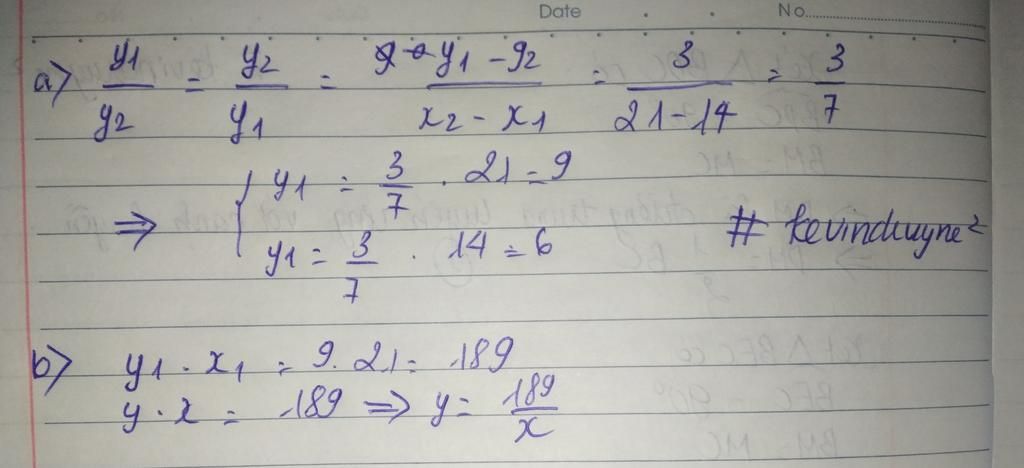 Date . . No.
a) y1/y2 = y2/y1 = y1 - y2/x2 - x1 = 3/21-14 = 3/7
⇒ { y1 = 3/7 . 21 = 9
y1 = 3/7 . 14 = 6
# kevinduyne²
b) y1 . x1 = 9.21 = 189
y . x = 189 ⇒ y = 189/x